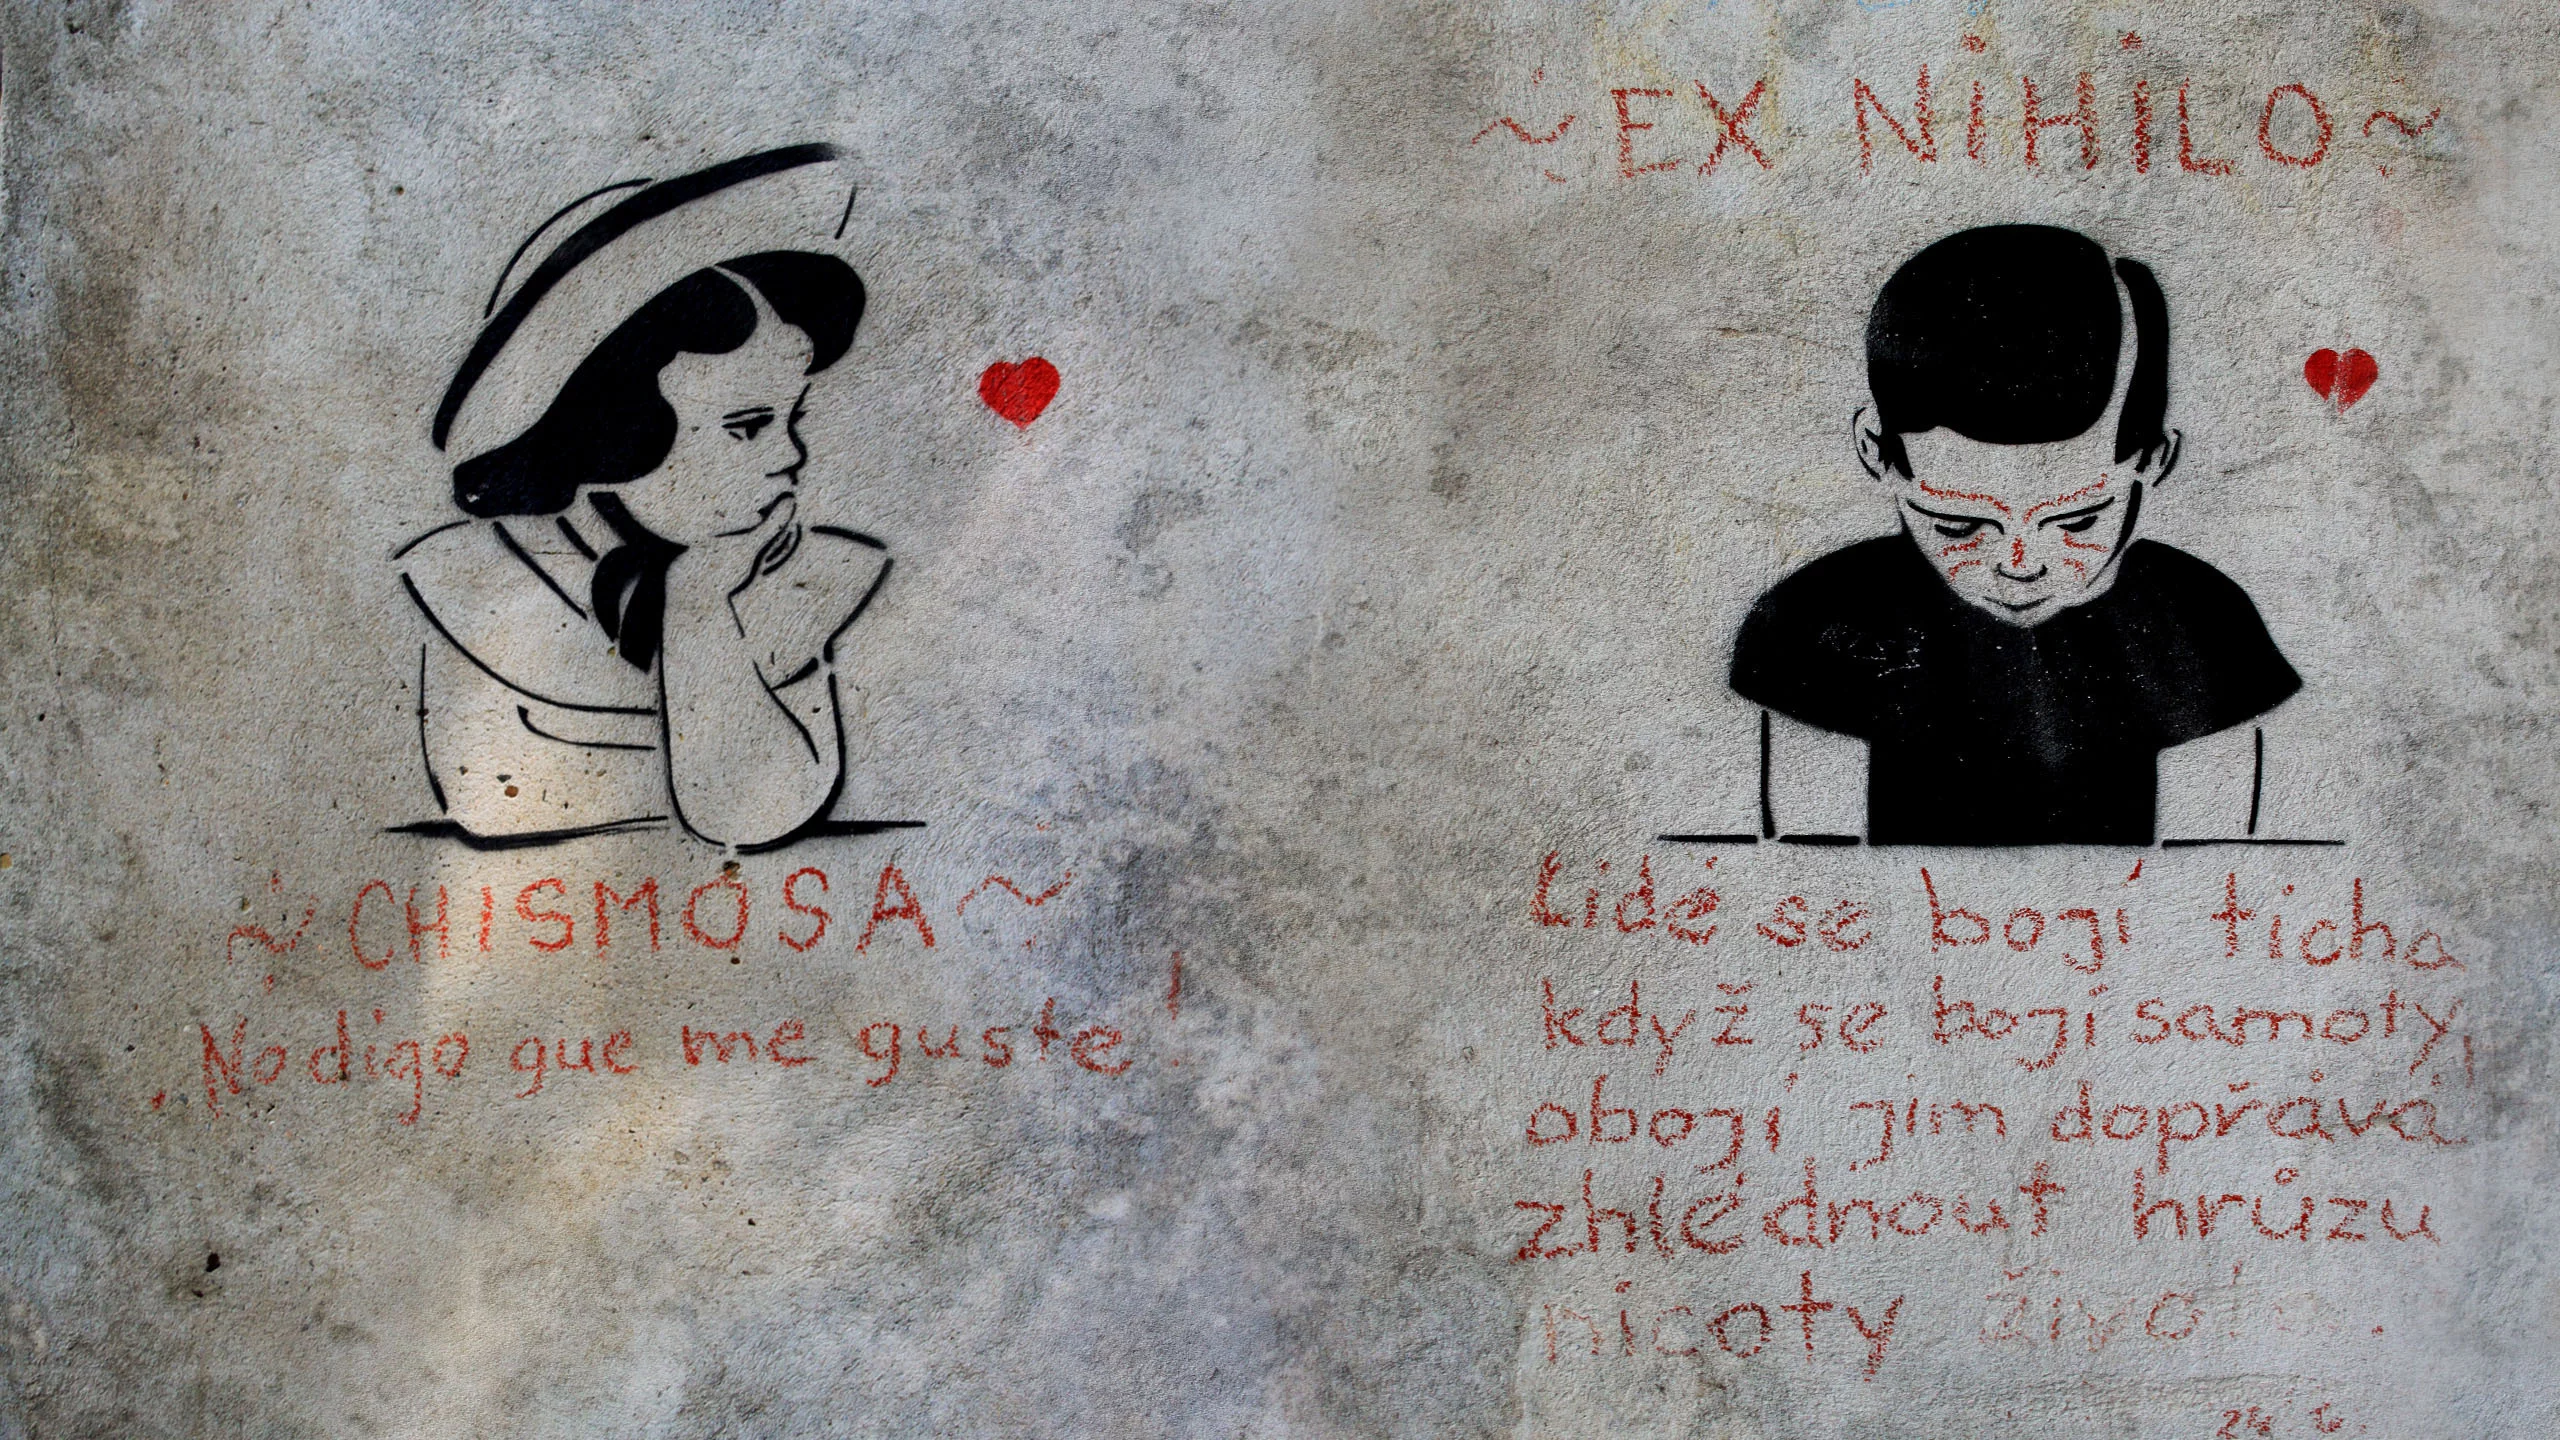 ~ CHISMOSA ~
No digo que me guste!
~ EX NiHiLO ~
Lidé se bojí ticha
když se bojí samoty,
obojí jim dopřává
zhlédnout hrůzu
nicoty života.
24. 6.